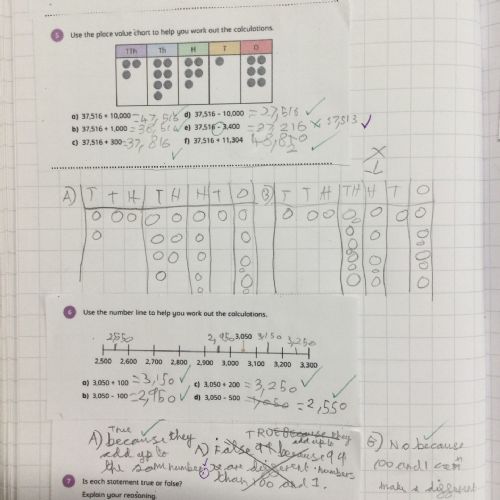 5 Use the place value chart to help you work out the calculations.
TTh Th H T O
a) 37,516 + 10,000 =47,516 d) 37,516 – 10,000 =27,516
b) 37,516 + 1,000 =38,516 e) 37,516 – 3,400 =27,216 × 37,513
c) 37,516 + 300 =37,816 f) 37,516 + 11,304 48,850
A) T T H T H H T O B) T T H TH H T O
6 Use the number line to help you work out the calculations.
2,550 2,950 3,050 3,150 3,250
2,500 2,600 2,700 2,800 2,900 3,000 3,100 3,200 3,300
a) 3,050 + 100 =3,150 c) 3,050 + 200 =3,250
b) 3,050 – 100 =2,950 d) 3,050 – 500 =2,550
True
A) because they
add up to
the same number
TRUE because they
add up to
A) False because 99
different numbers
than 100 and 1.
B) No because
100 and 1
make a different
7 Is each statement true or false?
Explain your reasoning.